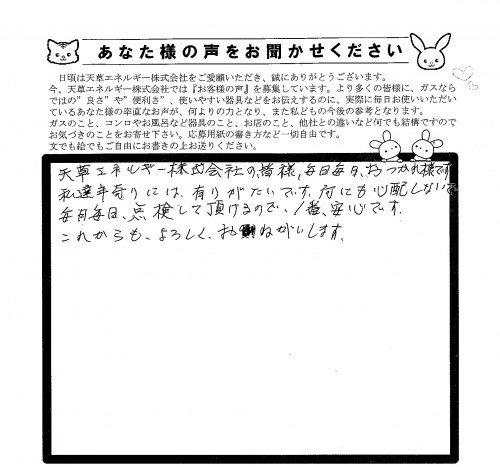 あなた様の声をお聞かせください
日頃は天草エネルギー株式会社をご愛顧いただき、誠にありがとうございます。
今、天草エネルギー株式会社では『お客様の声』を募集しています。より多くの皆様に、ガスなら
ではの”良さ”や”便利さ”、使いやすい器具などをお伝えするのに、実際に毎日お使いいただい
ているあなた様の率直なお声が、何よりの力となり、また私どもの今後の参考となります。
ガスのこと、コンロやお風呂など器具のこと、お店のこと、他社との違いなど何でも結構ですので
お気づきのことをお寄せ下さい。応募用紙の書き方など一切自由です。
文でも絵でもご自由にお書きの上お送りください。
天草エネルギー株式会社の皆様,毎日毎日、おつかれ様です
私達年寄りには、有りがたいです。何にも心配しないで
毎日毎日、点検して頂けるので、1番、安心です。
これからも、よろしく、おねがいします。